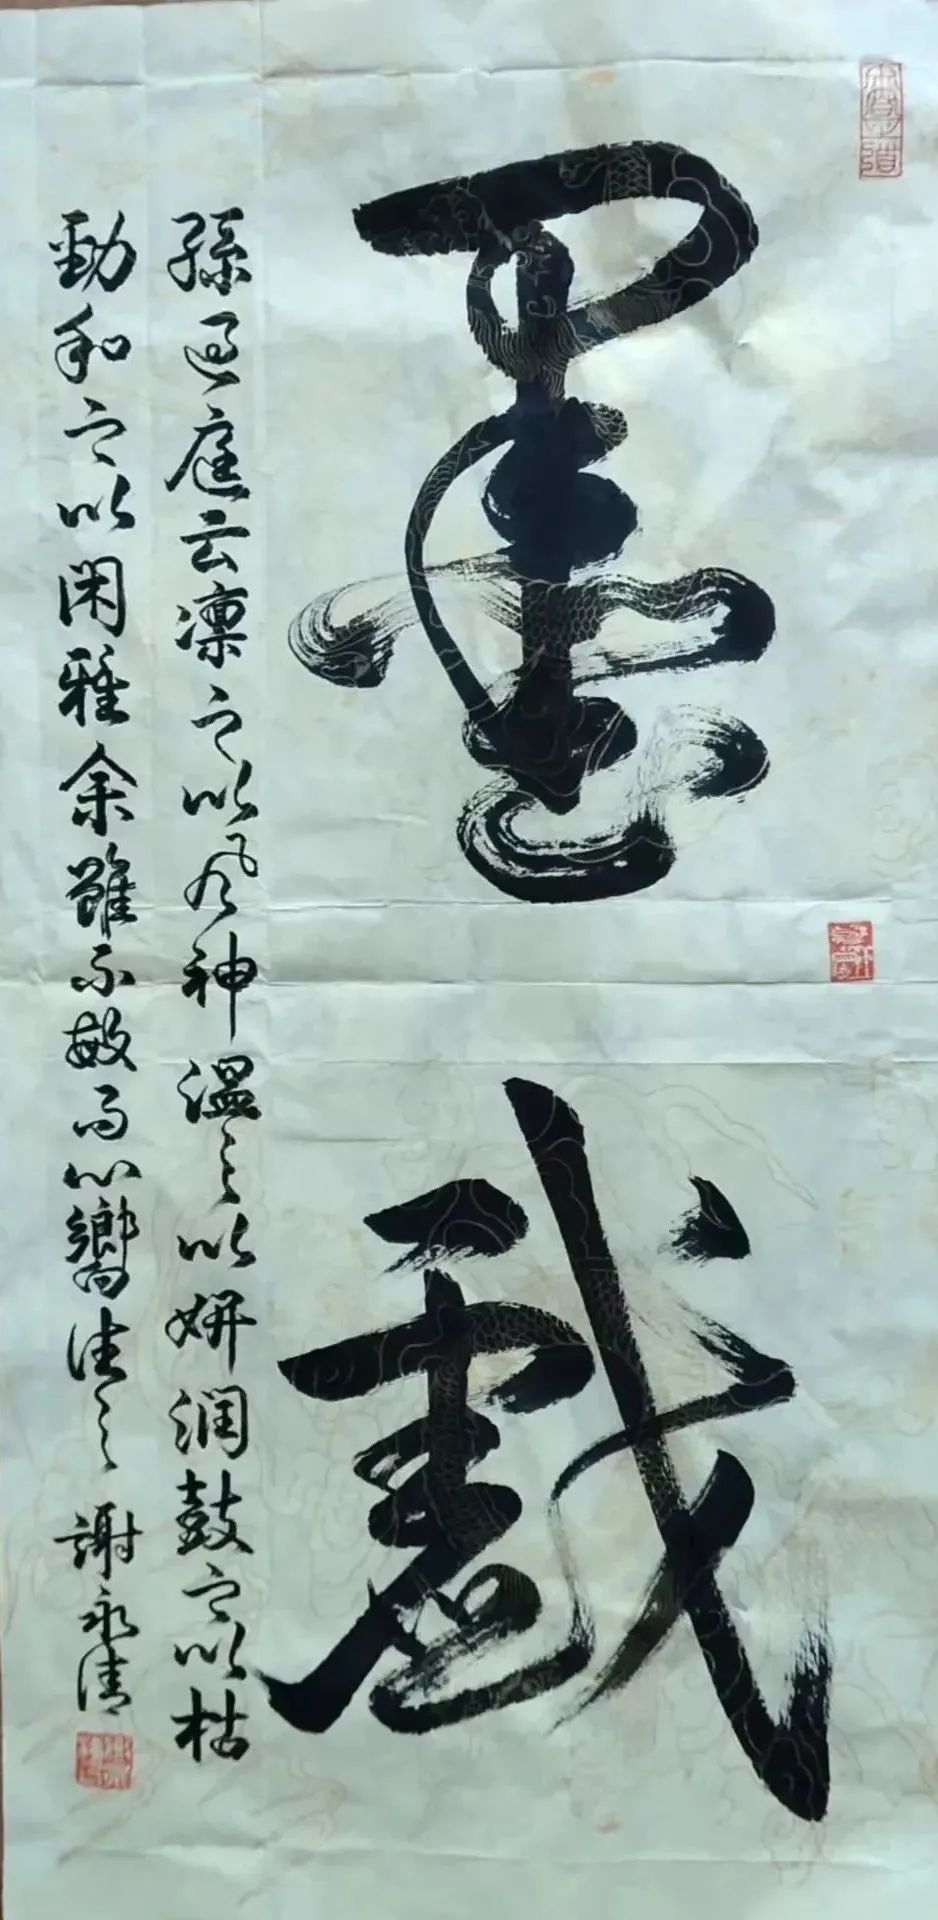 墨戲
孫過庭云凜之以風神溫之以妍潤鼓之以枯
勁和之以閑雅余雖不敏而心嚮往之 謝永清